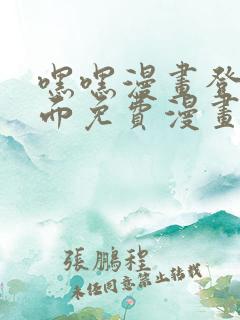 嘿嘿漫畫登
而免費漫畫
張鵬程
未任同意禁止转载